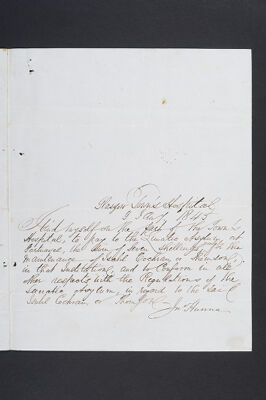 Glasgow Town's Hospital
9 Augt 1845
I bind myself on the part of the Town's
Hospital, to pay to the Lunatic Asylum at
Gartnavel, the sum of Seven shillings for the
maintenance of Isabel Cochran or Thomson
in that Institution, and to Conform in all
other respects with the Regulations of the
Lunatic Asylum, in regard to the said
Isabel Cochran or Thomson
Jno Hanna